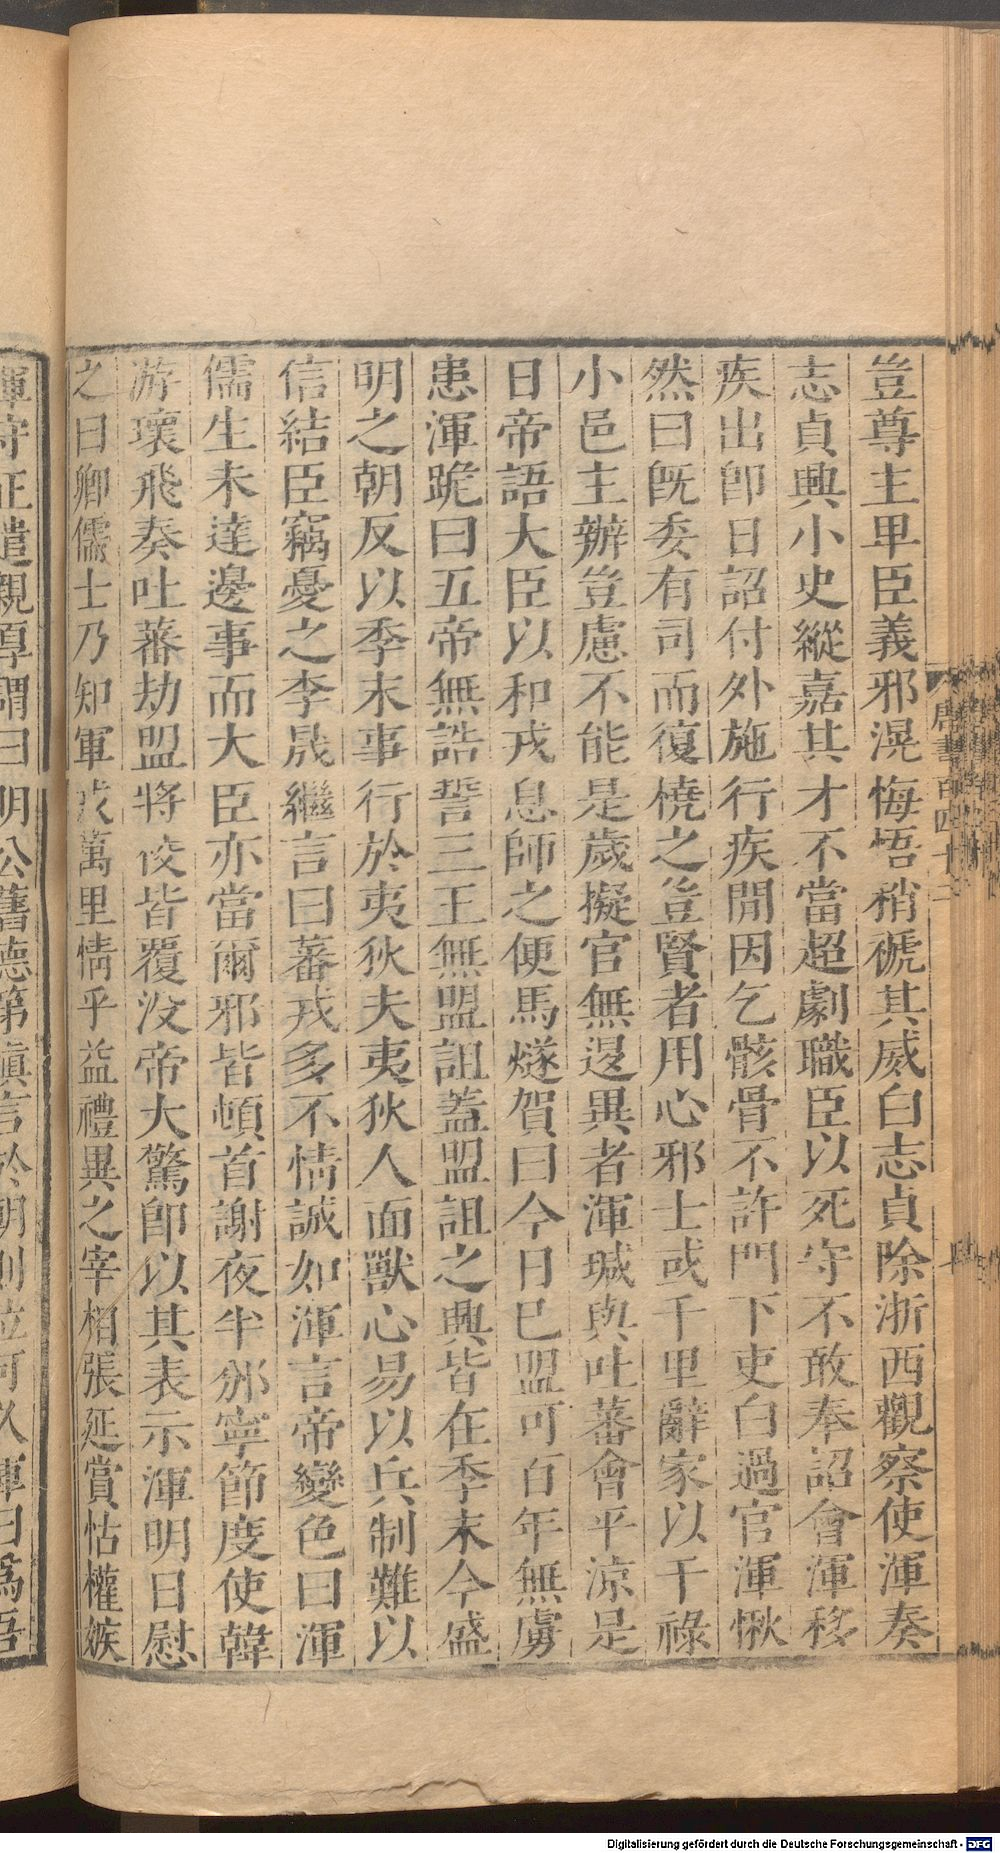 豈尊主卑臣義邪滉悔悟稍褫其威白志貞除浙西觀察使渾奏
志貞興小史縱嘉其才不當超劇職臣以死守不敢奉詔會渾移
疾出卽日詔付外施行疾閒因乞骸骨不許門下吏白過官渾愀
然曰旣委有司而復橈之豈賢者用心邪士或千里辭家以干祿
小邑主辦豈慮不能是歲擬官無退異者渾瑊與吐蕃會平涼是
日帝語大臣以和戎息師之便馬燧賀曰今日已盟可百年無虜
患渾跪曰五帝無誥誓三王無盟詛蓋盟詛之興皆在季末今盛
明之朝反以季末事行於夷狄夫夷狄人面獸心易以兵制難以
信結臣竊憂之李晟繼言曰蕃戎多不情誠如渾言帝變色曰渾
儒生未達邊事而大臣亦當爾邪皆頓首謝夜半邠寧節度使韓
游瓌飛奏吐蕃劫盟將校皆覆沒帝大驚卽以其表示渾明日慰
之曰卿儒士乃知軍戎萬里情乎益禮異之宰相張延賞怙權嫉
渾守正遣親厚謂曰明公舊德第愼言於朝則位可久渾曰爲吾
唐書百四十二
Digitalisierung gefördert durch die Deutsche Forschungsgemeinschaft - DFG